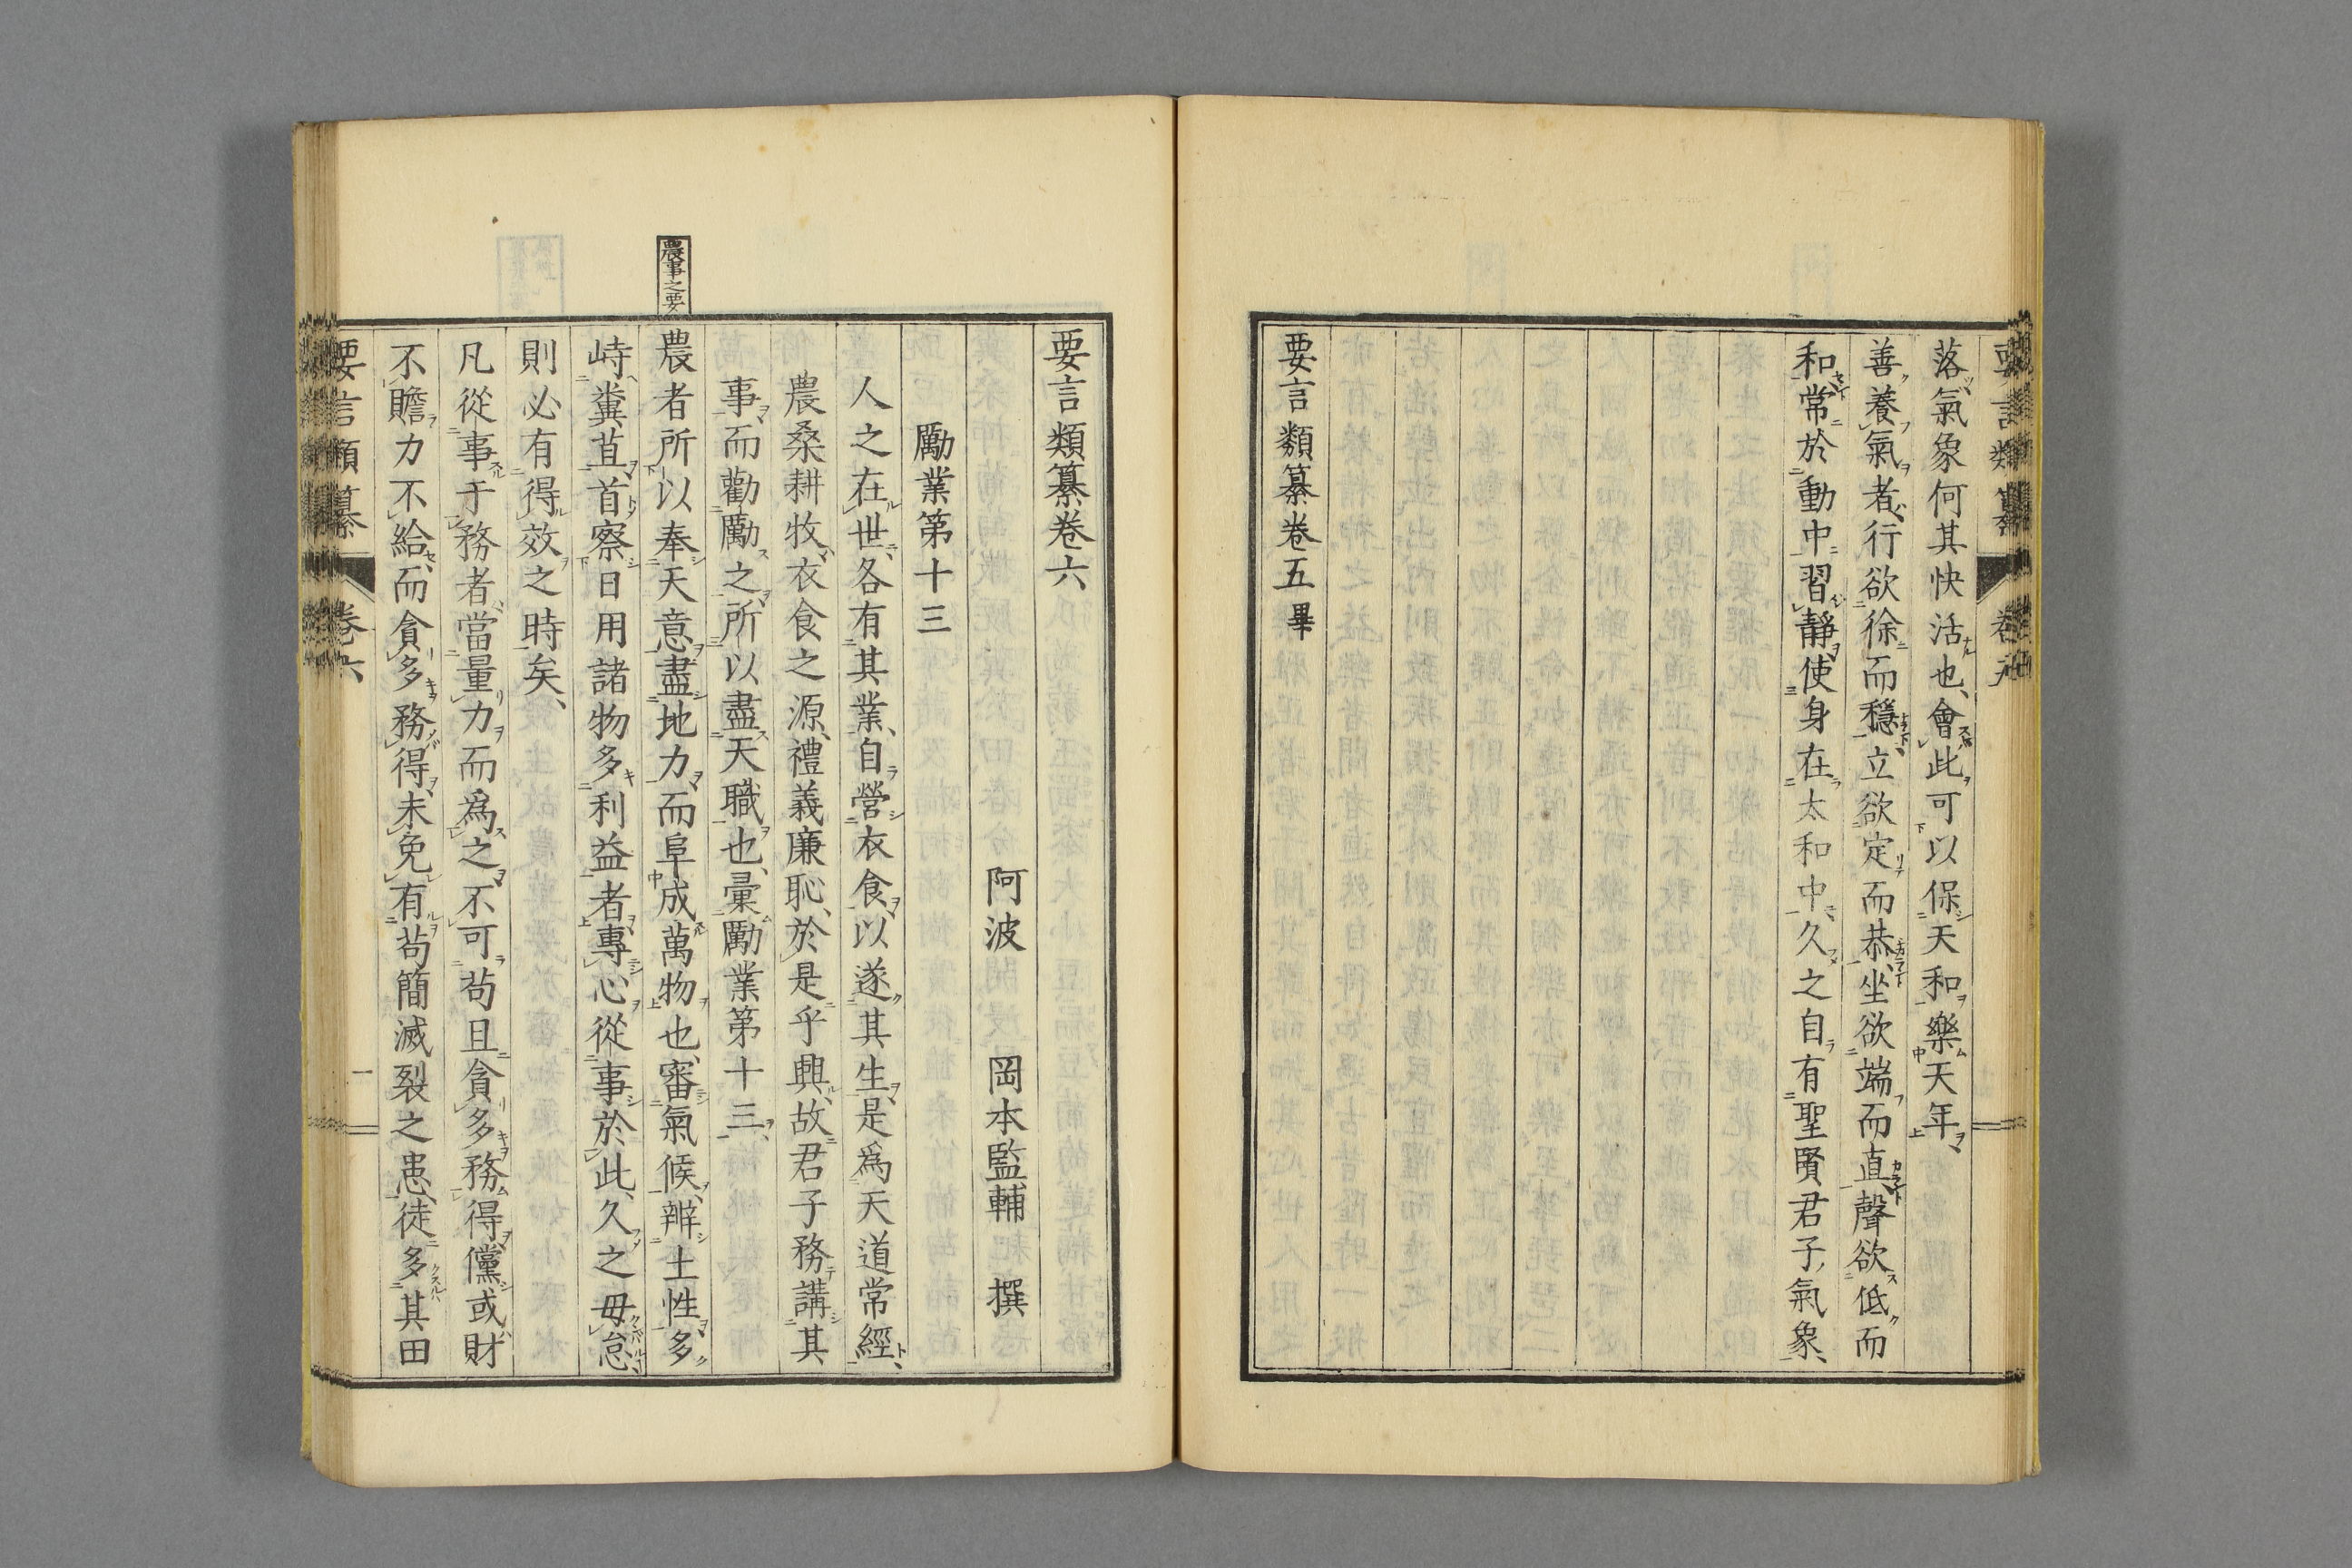 落氣象何其快活也、會此可以保天和樂天年、
善養氣者、行欲徐而穩、立欲定而恭、坐欲端而直、聲欲低而
和、常於動中習靜、使身在太和中、久之自有聖賢君子氣象、
要言類纂卷五畢
要言類纂卷六
阿波 岡本監輔 撰
勵業第十三
人之在世、各有其業、自營衣食、以遂其生、是爲天道常經、
農桑耕牧、衣食之源、禮義廉恥、於是乎興、故君子務講其
事、而勸勵之、所以盡天職也、彙勵業第十三、
農事之要
農者所以奉天意、盡地力、而阜成萬物也、審氣候、辨土性、多
峙糞苴、首察日用諸物多利益者、專心從事於此、久之毋怠、
則必有得效之時矣、
凡從事于務者、當量力而爲之、不可苟且貪多務得、儻或財
不贍力不給、而貪多務得、未免有苟簡滅裂之患、徒多其田
要言類纂 卷六 一